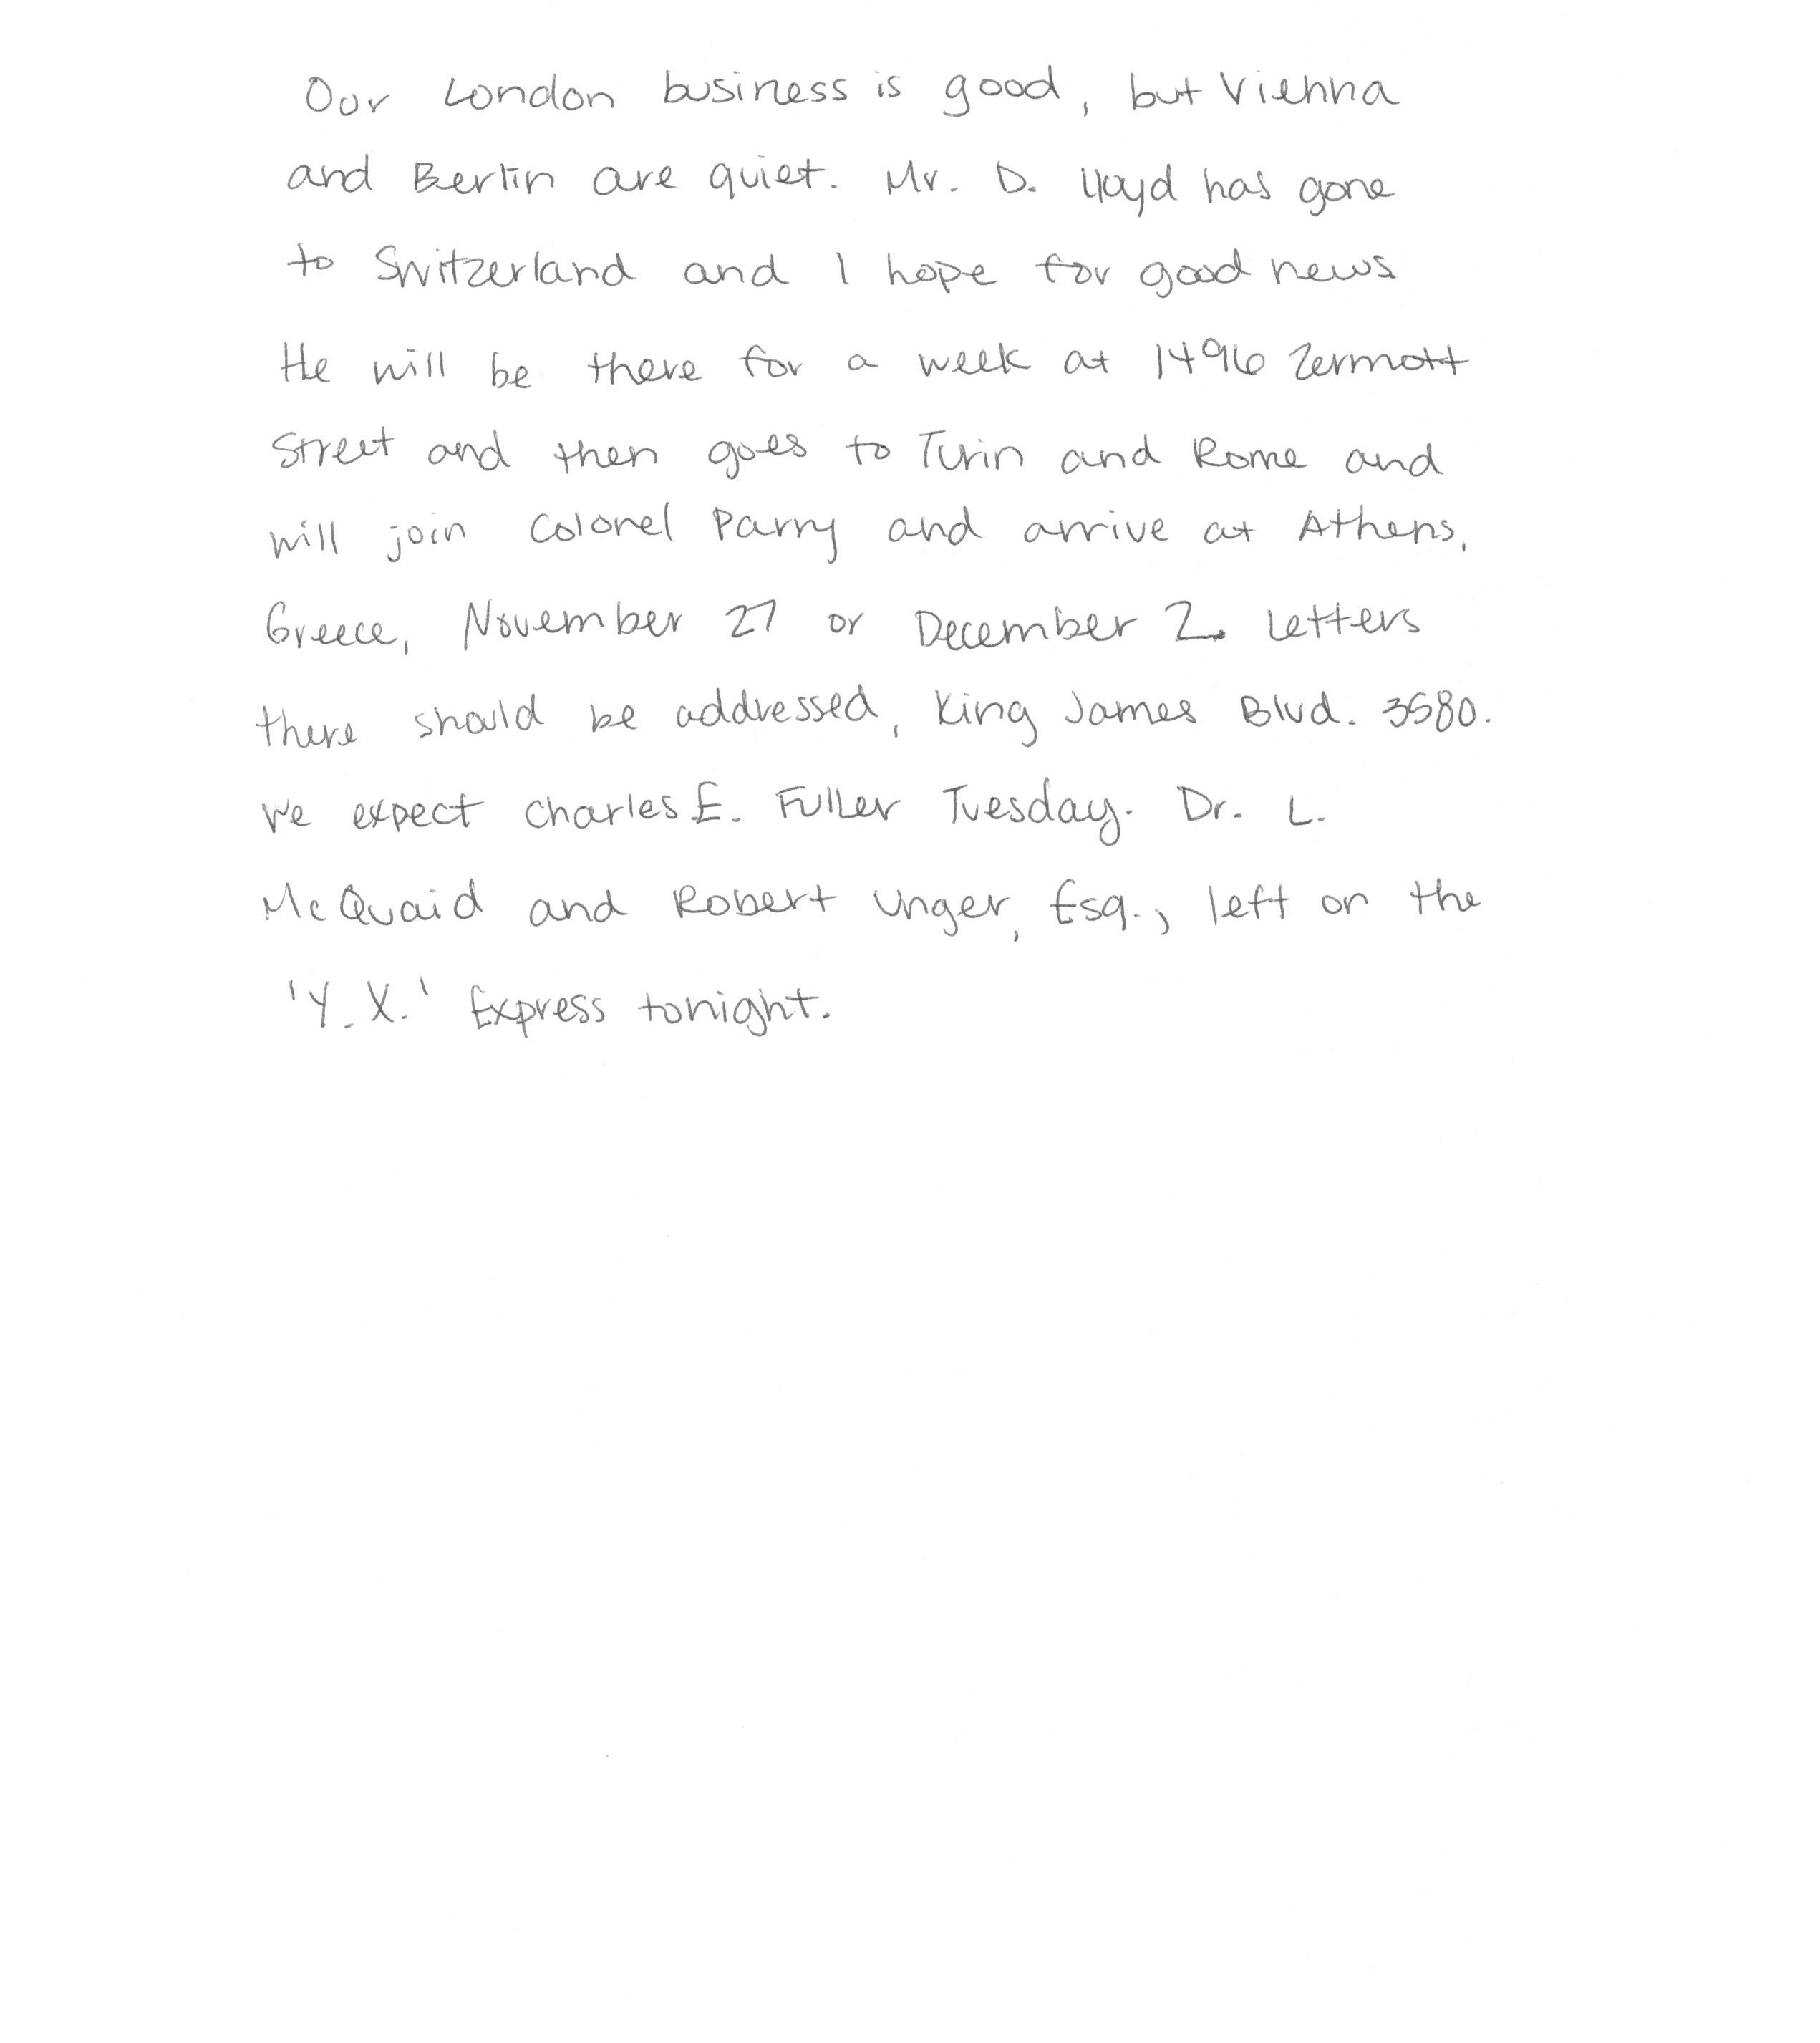 Our London business is good, but Vienna
and Berlin are quiet. Mr. D. Lloyd has gone
to Switzerland and I hope for good news
He will be there for a week at 1496 Zermott
Street and then goes to Turin and Rome and
will join Colonel Parry and arrive at Athens,
Greece, November 27 or December 2. Letters
there should be addressed, King James Blvd. 3580.
We expect Charles E. Fuller Tuesday. Dr. L.
McQuaid and Robert Unger, Esq., left on the
'Y.X.' Express tonight.